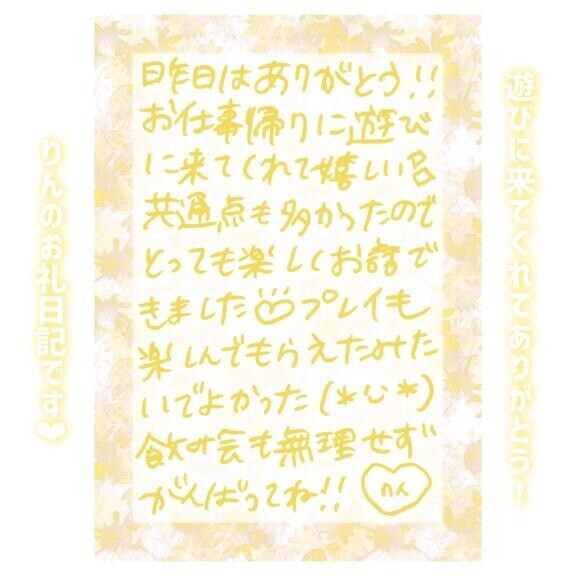 遊びに来てくれてありがとう！
昨日はありがとう!!
お仕事帰りに遊び
に来てくれて嬉しい
共通点も多かったので
とっても楽しくお話で
きました♡プレイも
楽しんでもらえたみた
いでよかった(*ᴗ*)
飲み会も無理せず
がんばってね!!
りん
りんのお礼日記です❤